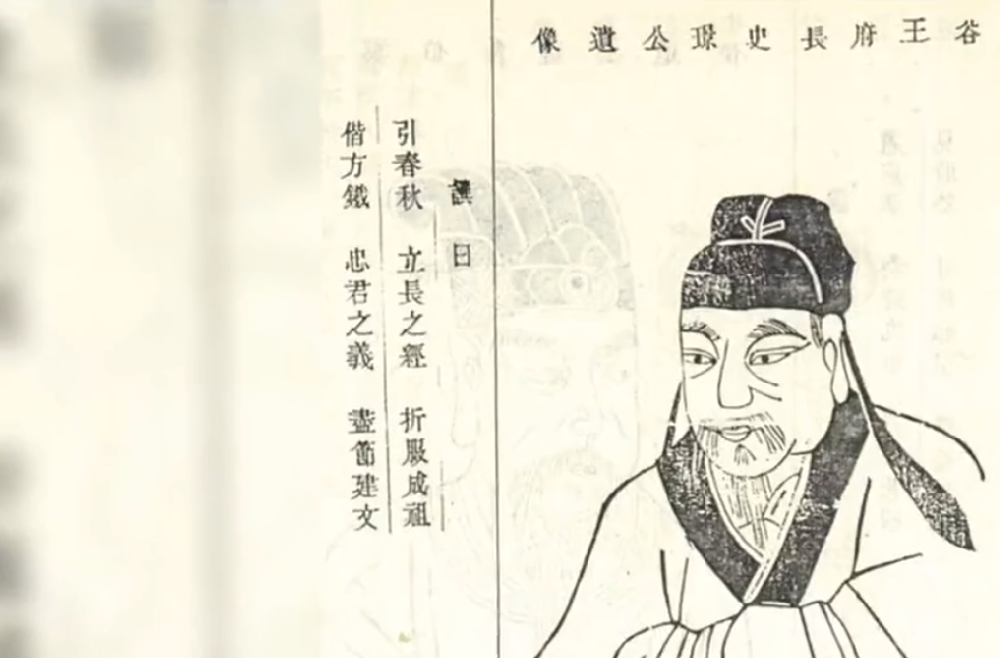 谷王府長史璟公遺像
讚曰
引春秋 立長之經 折服成祖
偕方鐵 忠君之義 盡節建文